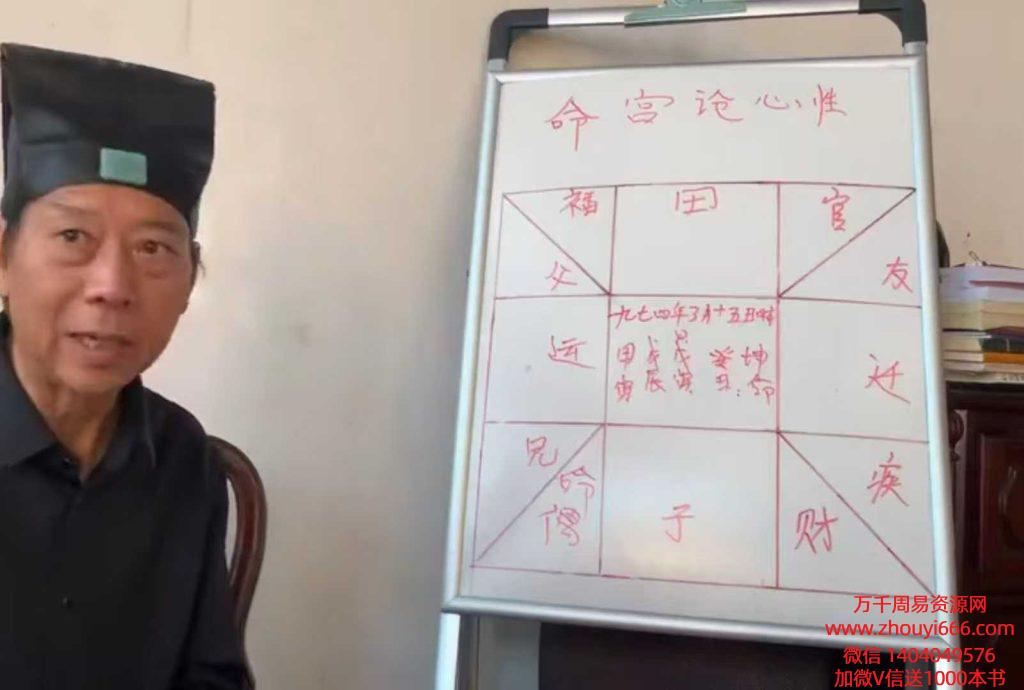 命宫论心性
福 田 官
父 友
九七四年3月十五
甲戊戊癸坤
寅辰 丑:命
运 迁
兄 疾
偶 子 财
万千周易资源网
www.zhouyi666.com
微信 1404049576
加微V信送1000本书